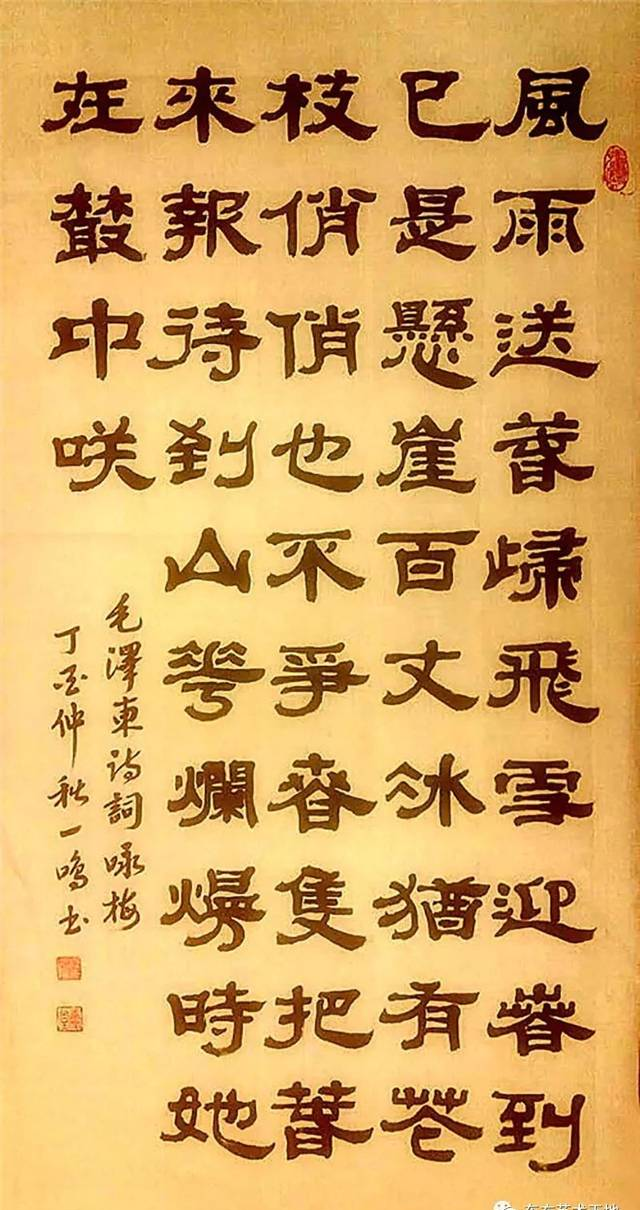 風雨送春歸飛雪迎春到
已是懸崖百丈冰猶有花
枝俏俏也不爭春隻把春
來報待到山華爛熳時她
在叢中咲
毛澤東诗詞咏梅
丁酉仲秋一鳴书